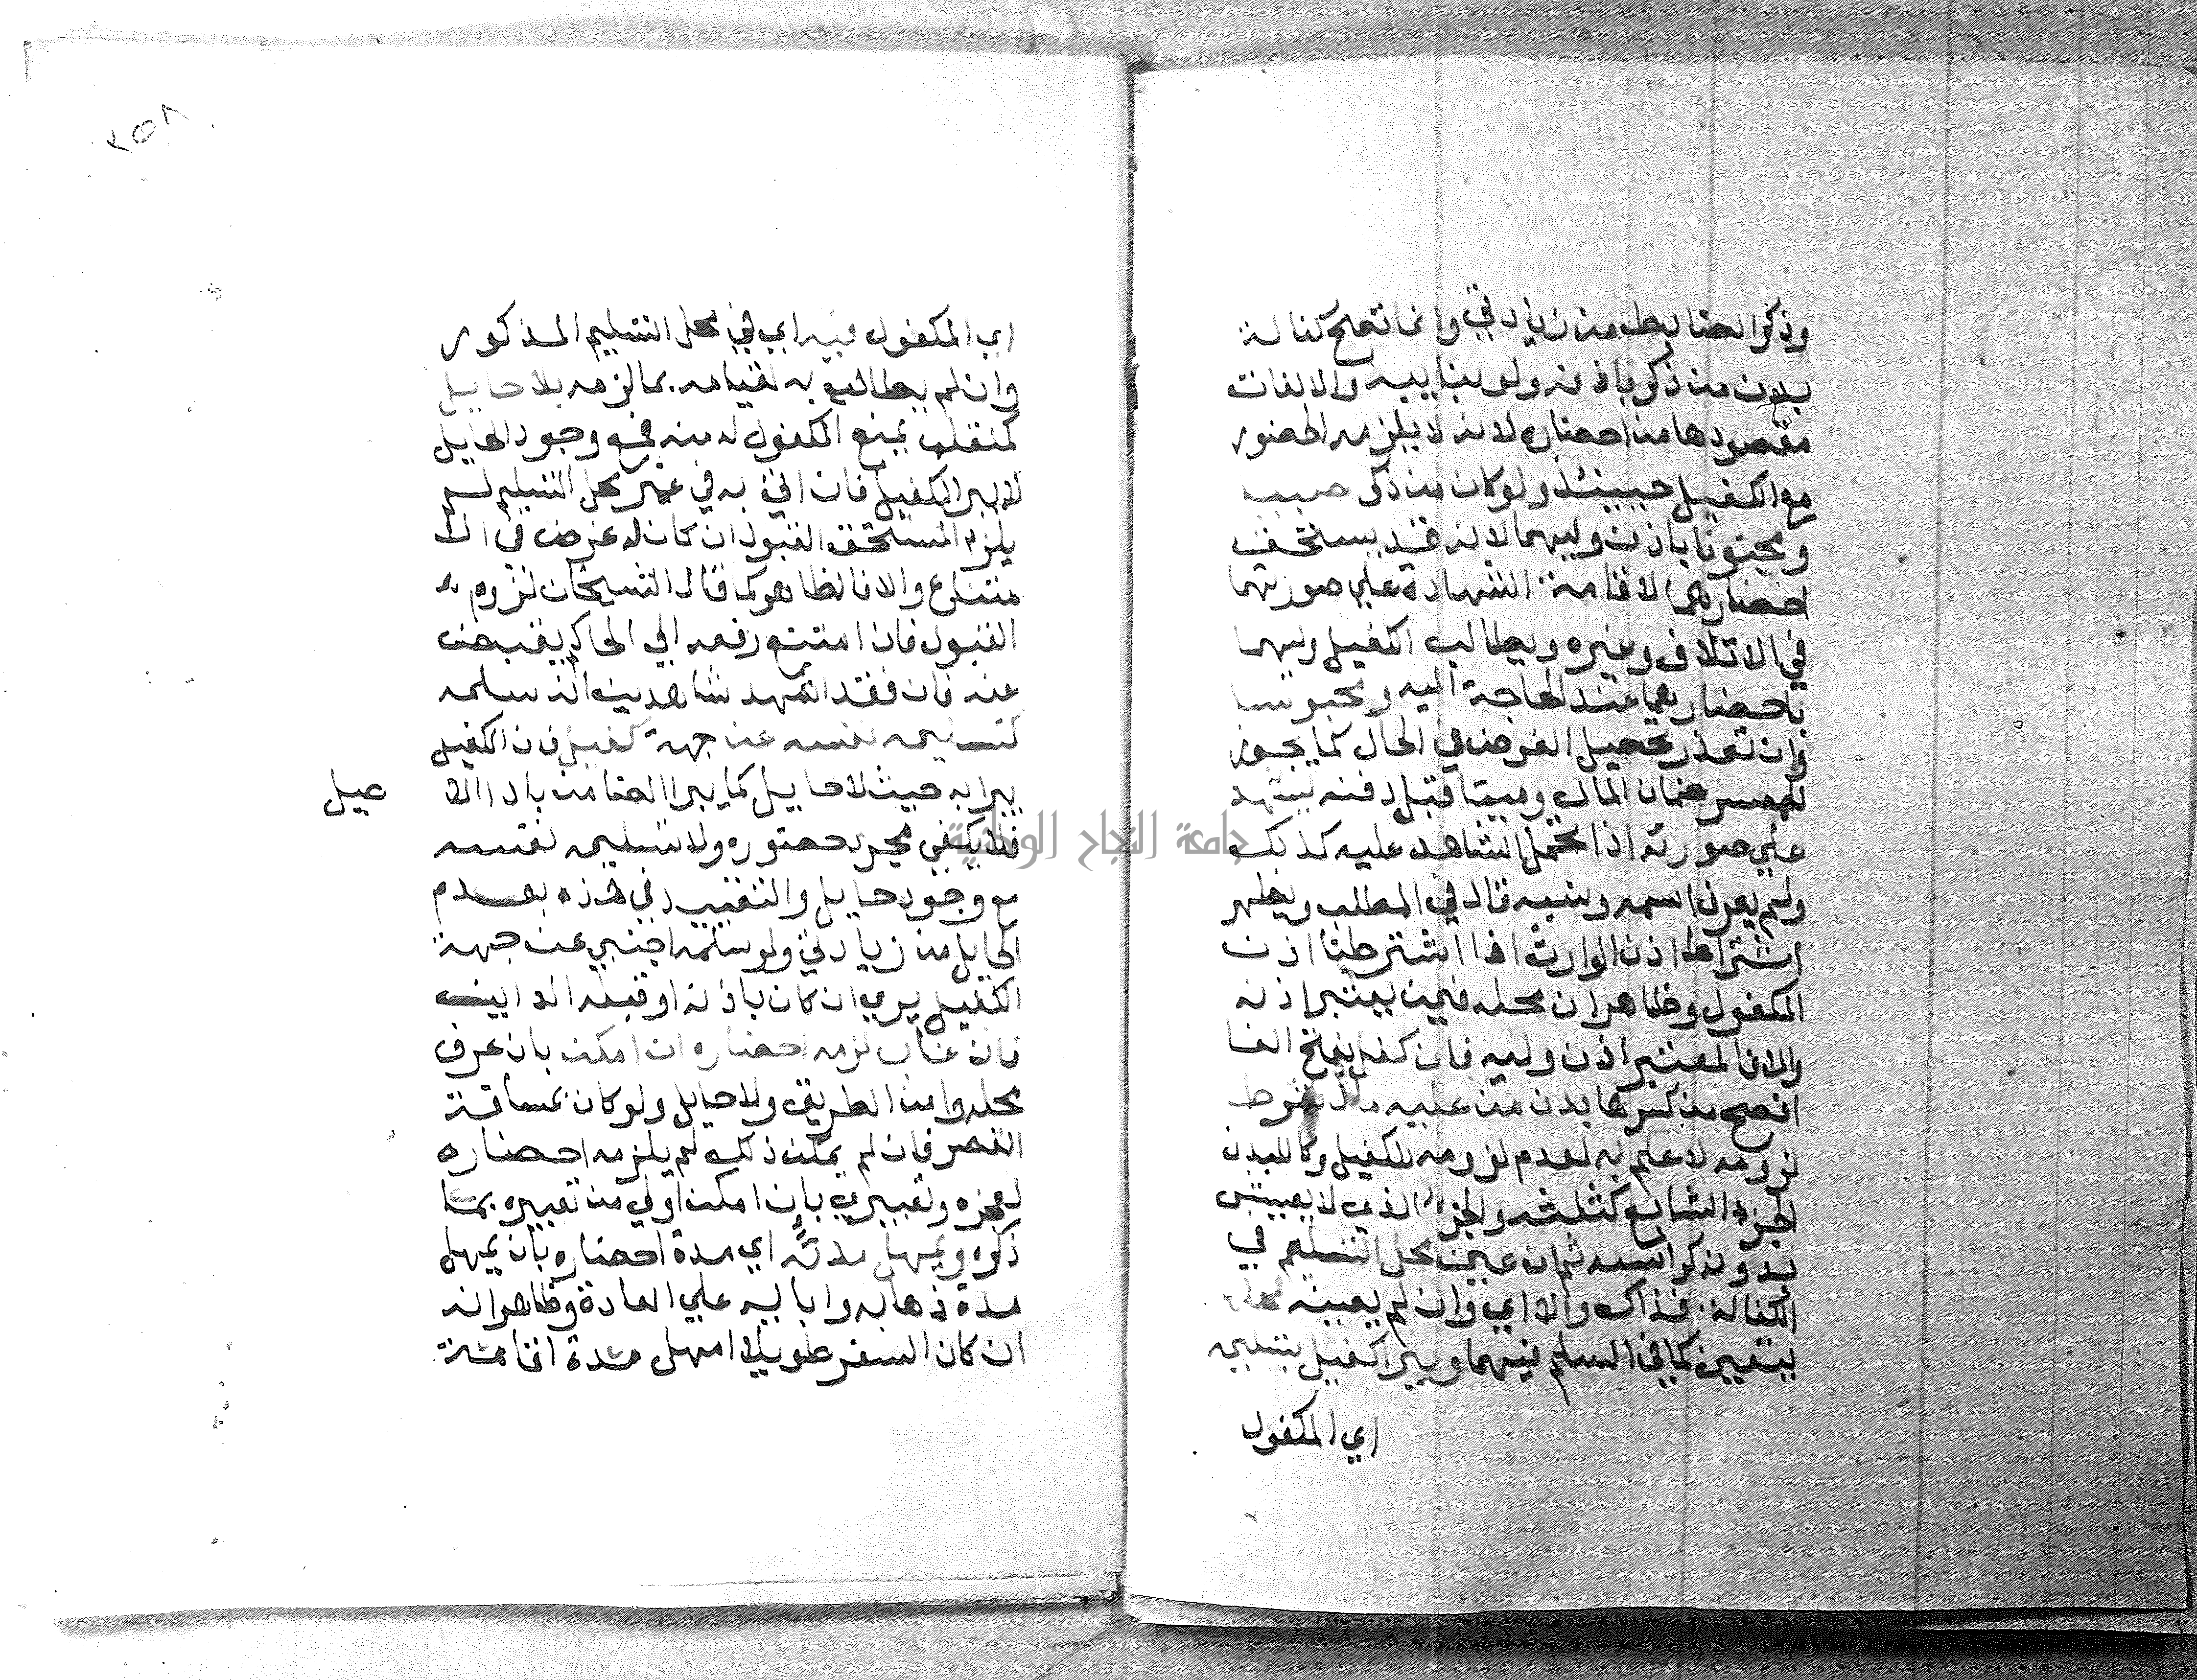 وذكر الضابط من زيادتي وانما تصح كفالة
بدن من ذكر باذنه ولو بنايبه والا لفات
مقصودها من احضاره لانه لا يلزمه الحضور
مع الكفيل حينئذ ولو كان من ذكر صبيا
ومجنونا باذن وليهما لانه قد يستحق
احضارهما لاقامة الشهادة علي صورتهما
في الاتلاف وغيره ويطالب الكفيل وليهما
باحضارهما عند الحاجة اليه ومحبوسا
وان تعذر تحصيل الغرض في الحال كما يجوز
للمعسر ضمان المال وميتا قبل دفنه ليشهد
علي صورته اذا تحمل الشاهد عليه كذلك
ولم يعرف اسمه ونسبه قال في المطلب ويظهر
اشتراط اذن الوارث اذا اشترطنا اذن
المكفول وظاهر ان محله فيمن يعتبر اذنه
والا فالمعتبر اذن وليه فان كفل بفتح الفا
افصح من كسرها بدن من عليه مال شرط
لزومه لا علم به لعدم لزومه للكفيل وكالبدن
الجزء الشايع كثلثه والجزء الذي لا يعيش
بدونه كراسه ثم ان عين محل التسليم في
الكفالة فذاك والا اي وان لم يعينه محلها
يتعين كما في السلم فيهما ويبرا كفيل بتسليمه
اي المكفول
٢٥٨
اي المكفول فيه اي في محل التسليم المذكور
وان لم يطالب به لقيامه بما لزمه بلا حايل
كمتغلب يمنع المكفول له منه فمع وجود الحايل
لا يبرا الكفيل فان اتي به في غير محل التسليم لم
يلزم المستحق القبول ان كان له غرض في الا
متناع والا فالظاهر كما قال الشيخان لزوم
القبول فان امتنع رفعه الي الحاكم يقبض
عنه فان فقد اشهد شاهدين انه سلمه
كتسليمه نفسه عن جهة كفيل فان الكفيل
يبرا به حيث لا حايل كما يبرا الضامن باداالا
صيل
فلا يكفي مجرد حضوره ولا تسليمه نفسه
مع وجود حايل والتقييد في هذه بعدم
الحايل من زيادتي ولو سلمه اجنبي عن جهة
الكفيل بري ان كان باذنه او قبله الداين
فان غاب لزمه احضاره ان امكن بان عرف
محله وامن الطريق ولا حايل ولو كان بمسافة
القصر فان لم يمكن ذلك لم يلزمه احضاره
لعجزه وتعبيري بان امكن اولي من تعبيره بما
ذكره ويمهل مدته اي مدة احضاره بان يمهل
مدة ذهابه وايابه علي العادة وظاهر انه
ان كان السفر طويلا امهل مدة اقامة
جامعة النجاح الوطنية